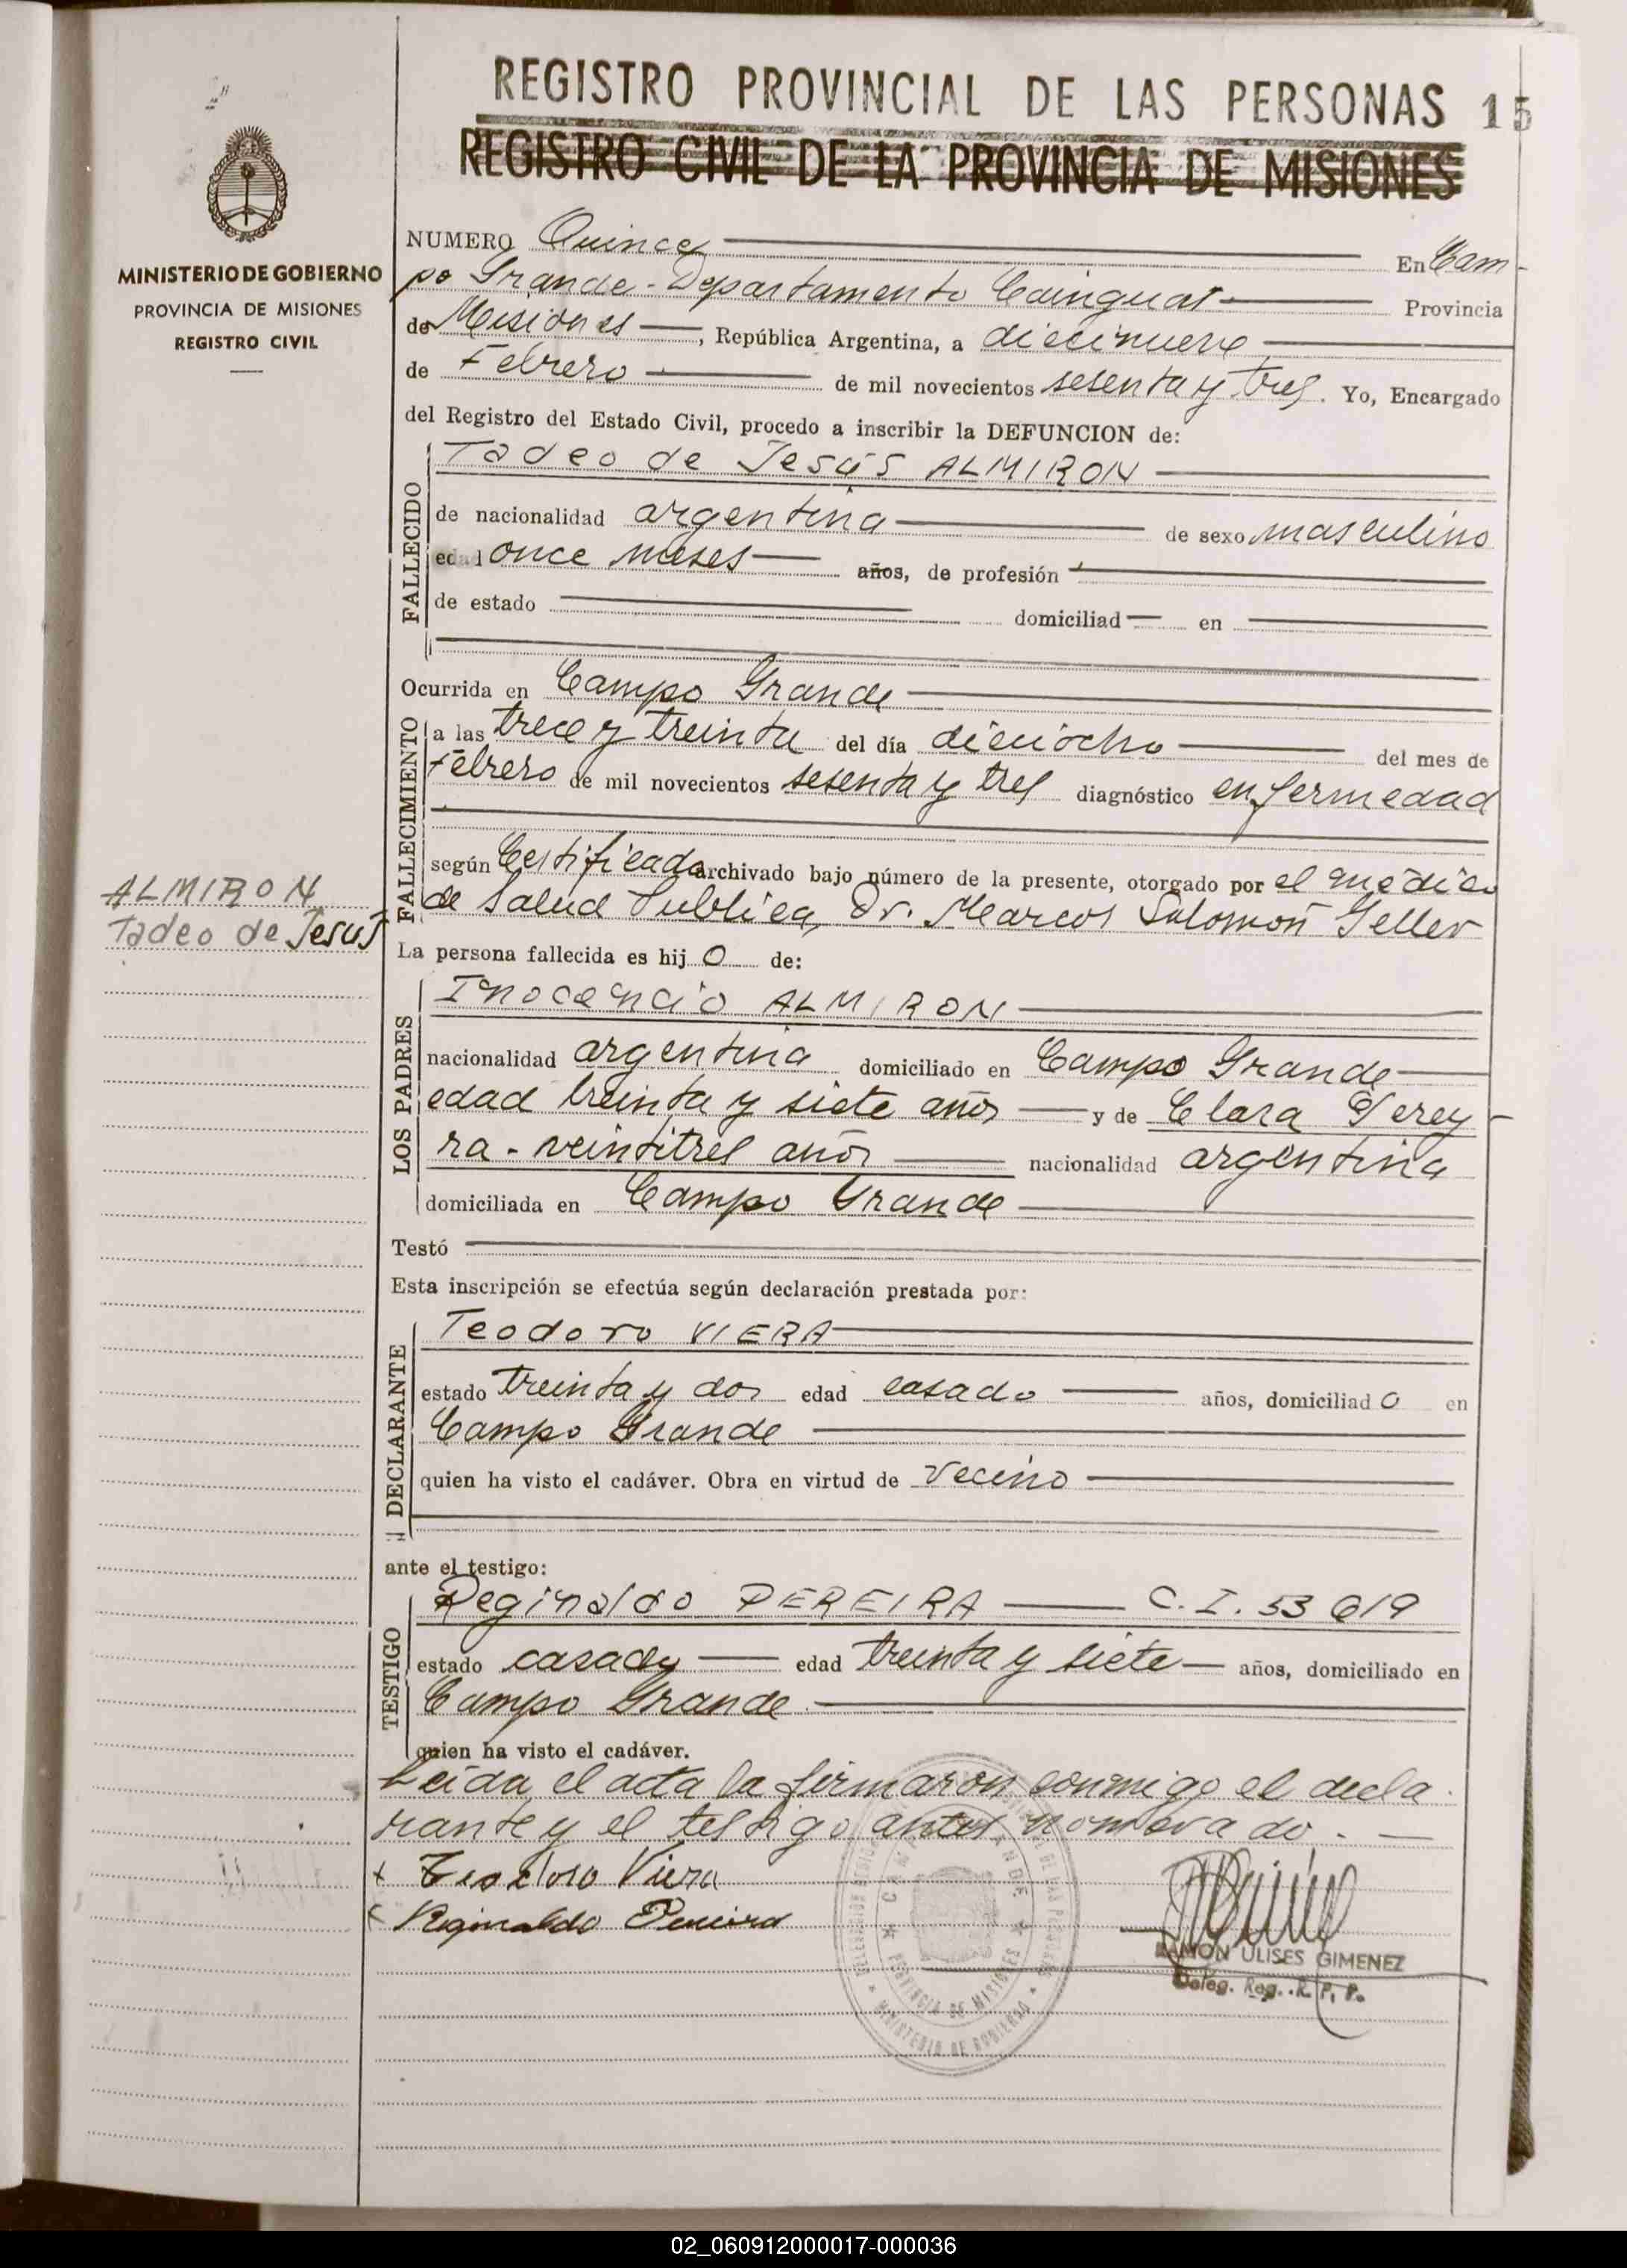 REGISTRO PROVINCIAL DE LAS PERSONAS 15
REGISTRO CIVIL DE LA PROVINCIA DE MISIONES
MINISTERIO DE GOBIERNO
PROVINCIA DE MISIONES
REGISTRO CIVIL
NUMERO Quince En Cam-
po Grande - Departamento Cainguas Provincia
de Misiones, República Argentina, a diecinueve
de Febrero de mil novecientos sesenta y tres. Yo, Encargado
del Registro del Estado Civil, procedo a inscribir la DEFUNCION de:
FALLECIDO
Tadeo de Jesús ALMIRON
de nacionalidad argentina de sexo masculino
edad once meses años, de profesión
de estado domiciliad en
Ocurrida en Campo Grande
FALLECIMIENTO
a las trece y treinta del día dieciocho del mes de
Febrero de mil novecientos sesenta y tres diagnóstico enfermedad
según Certificado archivado bajo número de la presente, otorgado por el médico
de Salud Publica, Dr. Marcos Salomon Geller
ALMIRON
Tadeo de Jesus
La persona fallecida es hij o de:
LOS PADRES
Inocencio ALMIRON
nacionalidad argentina domiciliado en Campo Grande
edad treinta y siete años y de Clara Perey-
ra - veintitres años nacionalidad argentina
domiciliada en Campo Grande
Testó
Esta inscripción se efectúa según declaración prestada por:
DECLARANTE
Teodoro VIERA
estado treinta y dos edad casado años, domiciliad o en
Campo Grande
quien ha visto el cadáver. Obra en virtud de vecino
ante el testigo:
TESTIGO
Reginaldo PEREIRA C.I. 53 619
estado casado edad treinta y siete años, domiciliado en
Campo Grande
quien ha visto el cadáver.
Leida el acta la firmaron conmigo el decla-
rante y el testigo antes nombrado.
x Teodoro Viera
x Reginaldo Pereira
CAMPO GRANDE
PROVINCIA DE MISIONES
MINISTERIO DE GOBIERNO
RAMON ULISES GIMENEZ
Deleg. Reg. R. P. P.
02_060912000017-000036